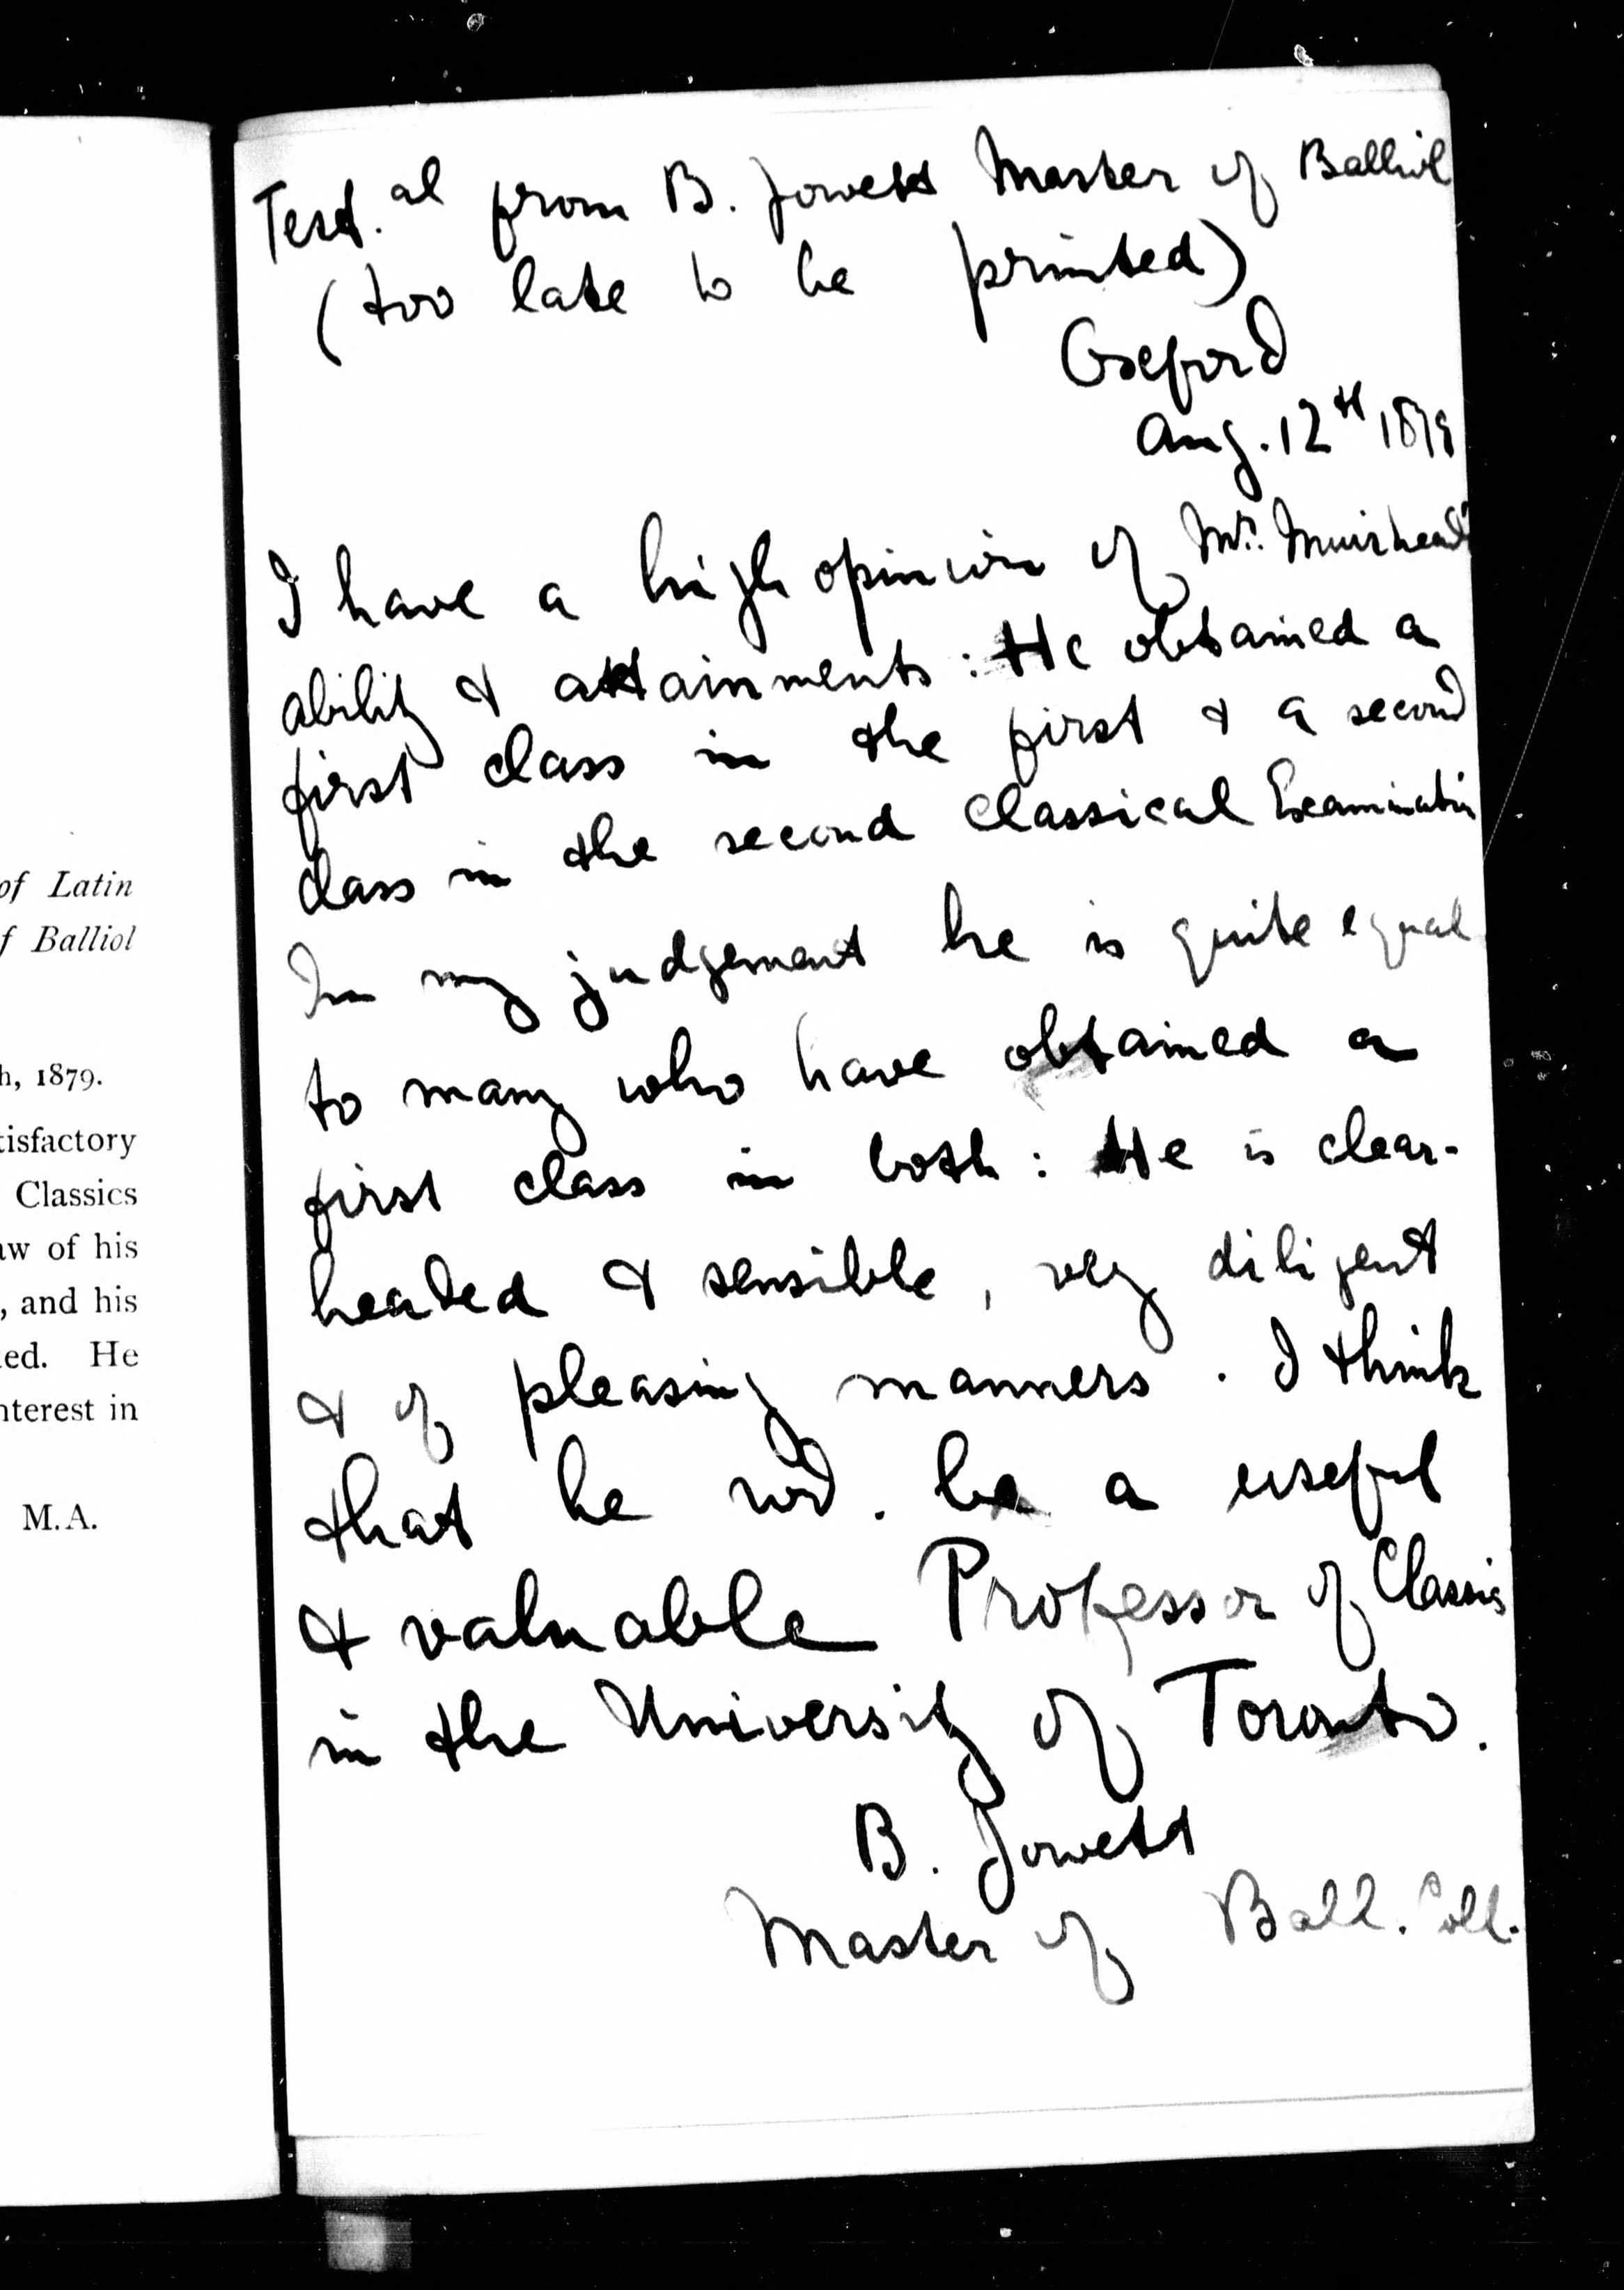 of Latin
f Balliol
h, 1879.
tisfactory
Classics
aw of his
, and his
ted. He
nterest in
M.A.
Test.al from B. Jowett Master of Balliol
(too late to be printed)
Oxford
Aug. 12th 1879
I have a high opinion of Mr. Muirhead's
ability & attainments: He obtained a
first class in the first & a second
class in the second classical Examination
In my judgement he is quite equal
to many who have obtained a
first class in both: He is clear-
headed & sensible, very diligent
& of pleasing manners. I think
that he wd. be a useful
& valuable Professor of Classics
in the University of Toronto.
B. Jowett
Master of Ball. Coll.